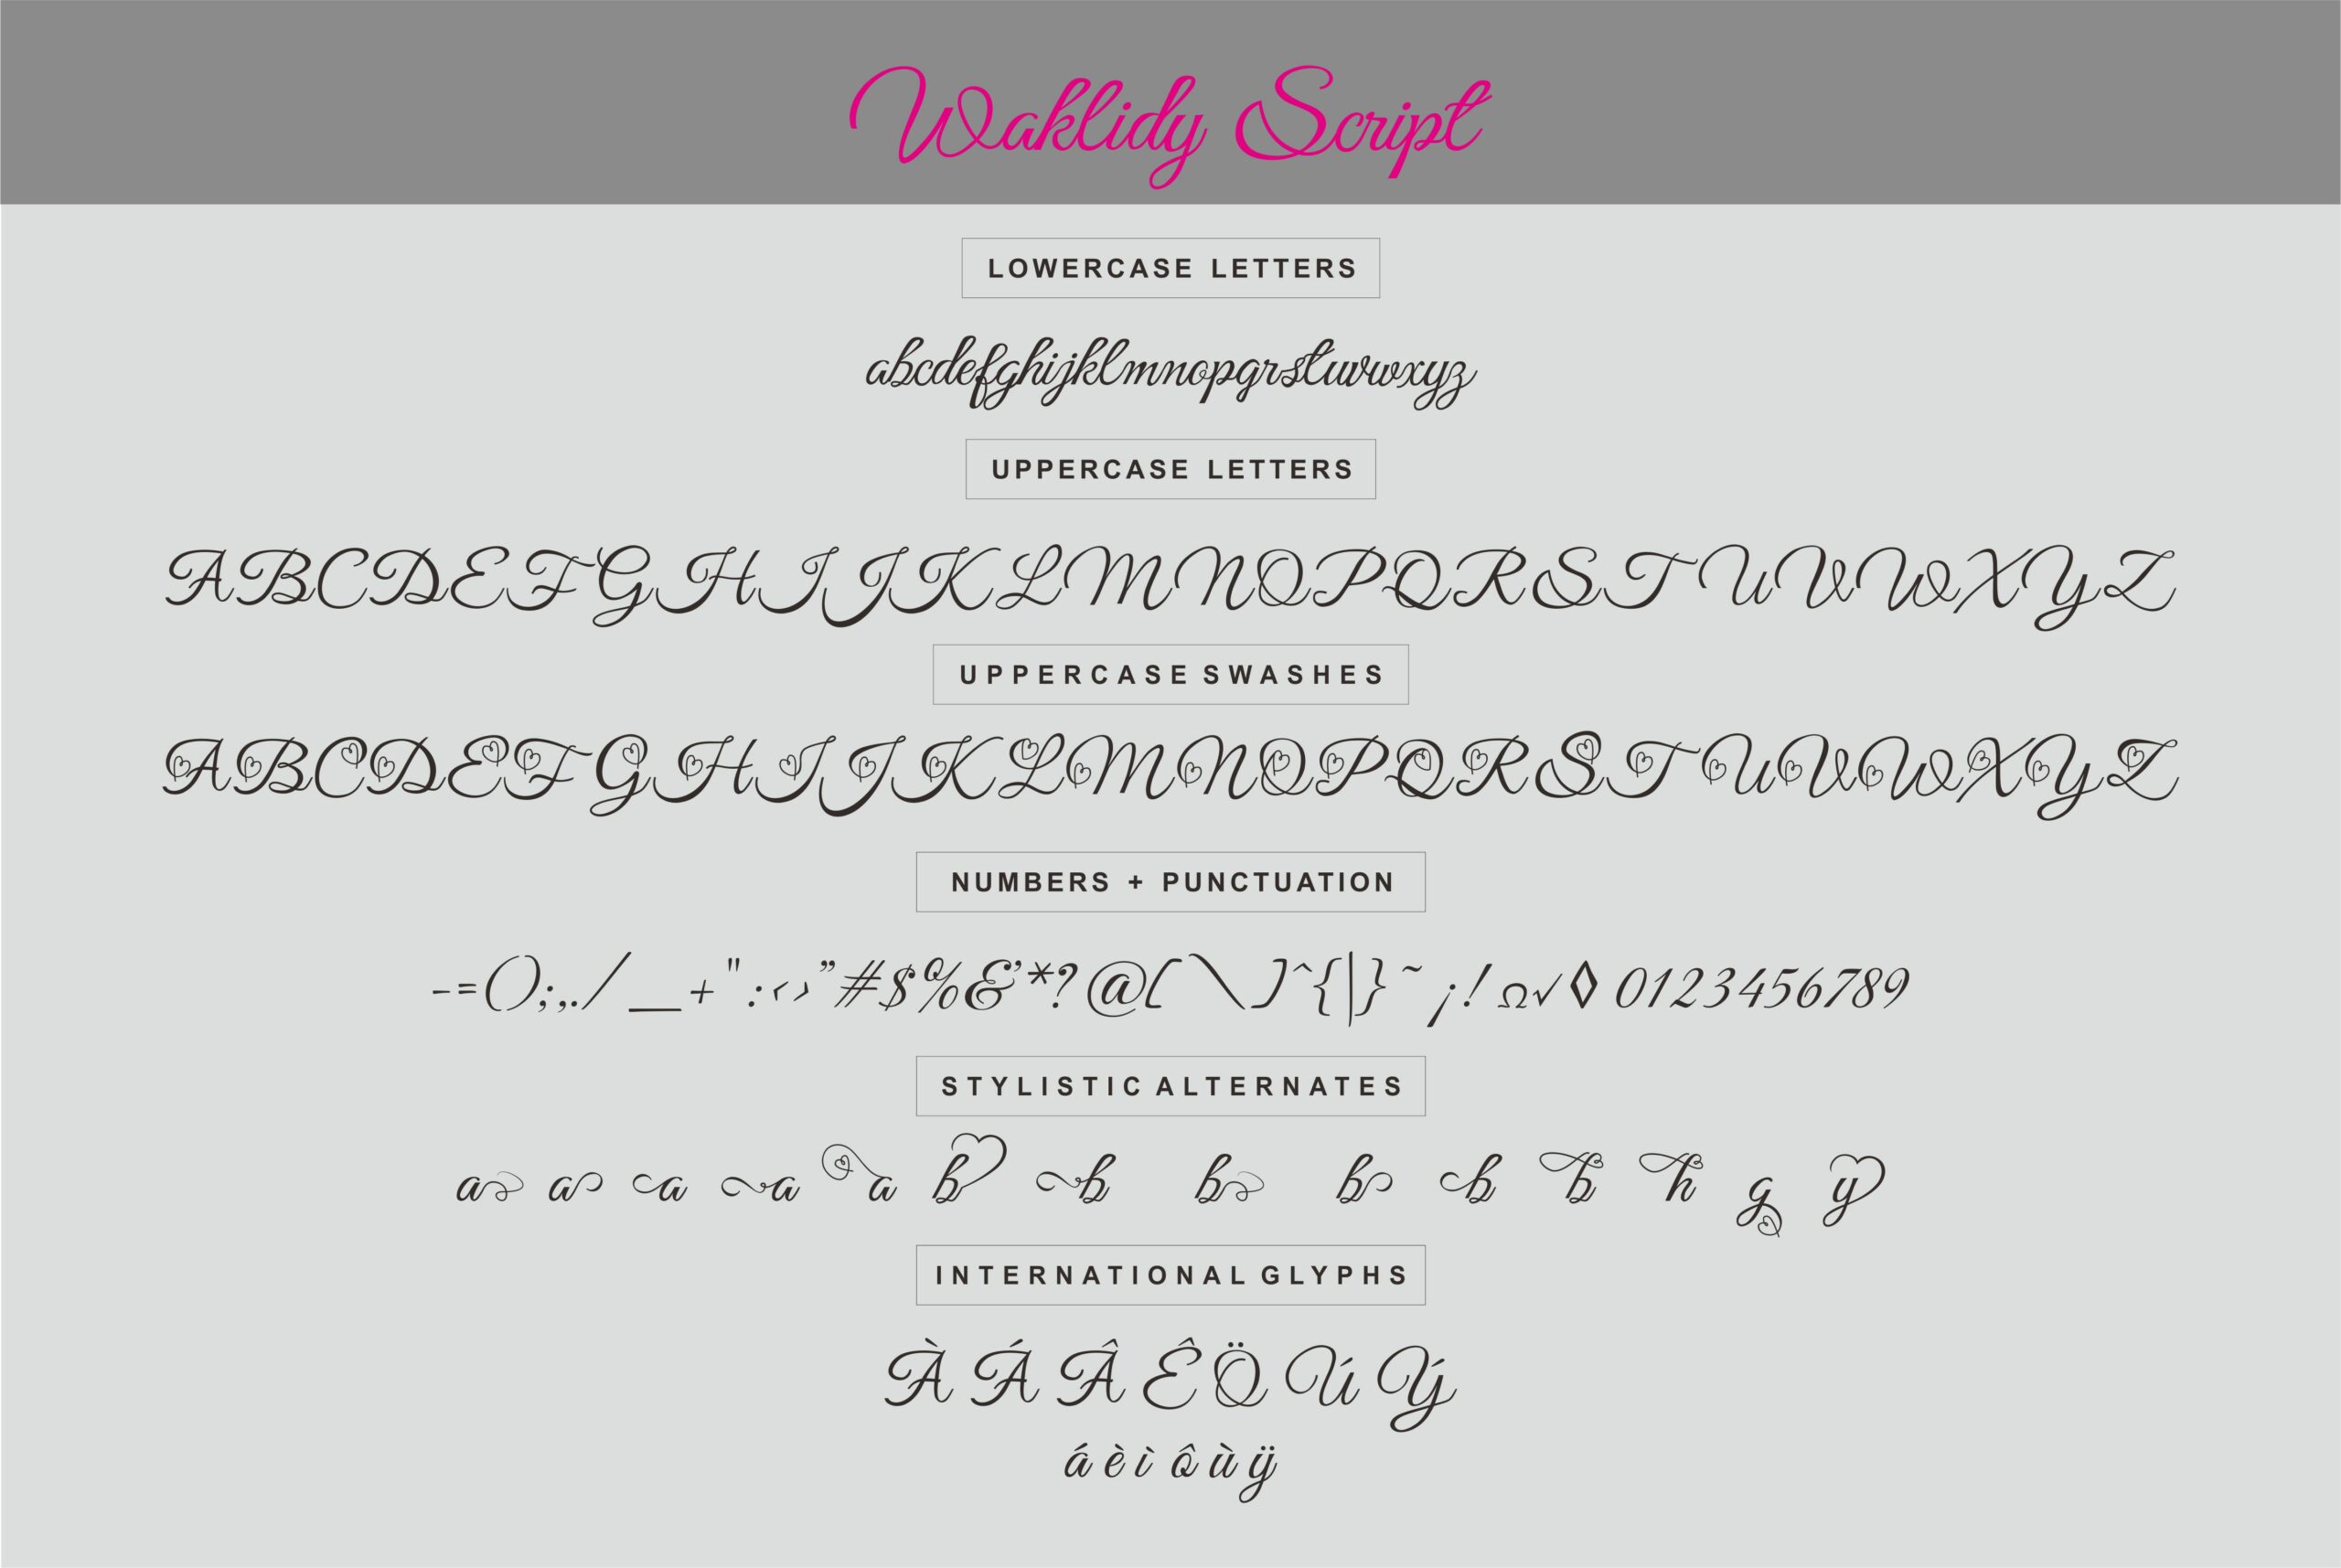 Waklidy Script
LOWERCASE LETTERS
abcdefghijklmnopqrstuvwxyz
UPPERCASE LETTERS
ABCDEFGHIJKLMNOPQRSTUVWXYZ
UPPERCASE SWASHES
ABCDEFGHIJKLMNOPQRSTUVWXYZ
NUMBERS + PUNCTUATION
-=();,./_+":‹›”#$%&’*?@[\]^{|}~¡!Ω√◊0123456789
STYLISTIC ALTERNATES
a a a a a b b b b b b h g y
INTERNATIONAL GLYPHS
À Á Â Ê Ö Ú Ý
á è ì ô ù ÿ